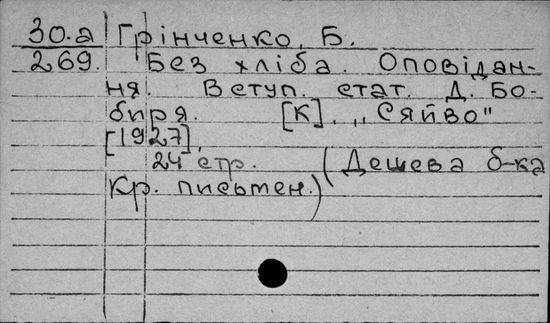 30.а Грінченко, Б.
269. Без хліба. Оповідан-
ня. Вступ. стат. Д. Бо-
биря. [К], „Сяйво"
[1927],
24 стр. (Дешева б-ка
Кр. письмен.)